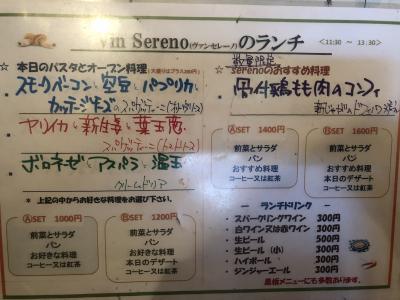 Vin Sereno(ヴァンセレーノ)のランチ <11:30 ~ 13:30>
☆ 本日のパスタとオーブン料理(大盛りはプラス200円)
スモークベーコンと空豆とパプリカ
カッテージチーズの
ヤリイカと新生姜と葉玉葱
ボロネーゼ アスパラと温玉
クリームドリア
* 上記の中からお好きな料理をお選び下さい.
ⒶSET 1000円
前菜とサラダ
パン
お好きな料理
コーヒー又は紅茶
ⒷSET 1200円
前菜とサラダ
パン
お好きな料理
本日のデザート
コーヒー又は紅茶
数量限定
☆ serenoのおすすめ料理
骨付鶏もも肉のコンフィ
ⒶSET 1400円
前菜とサラダ
パン
おすすめ料理
コーヒー又は紅茶
ⒷSET 1600円
前菜とサラダ
パン
おすすめ料理
本日のデザート
コーヒー又は紅茶
- ランチドリンク -
・ スパークリングワイン 300円
・ 白ワイン又は赤ワイン 300円
・ 生ビール 500円
・ 生ビール (小) 300円
・ ハイボール 300円
・ ジンジャーエール 300円
黒板メニューにも多数あります.